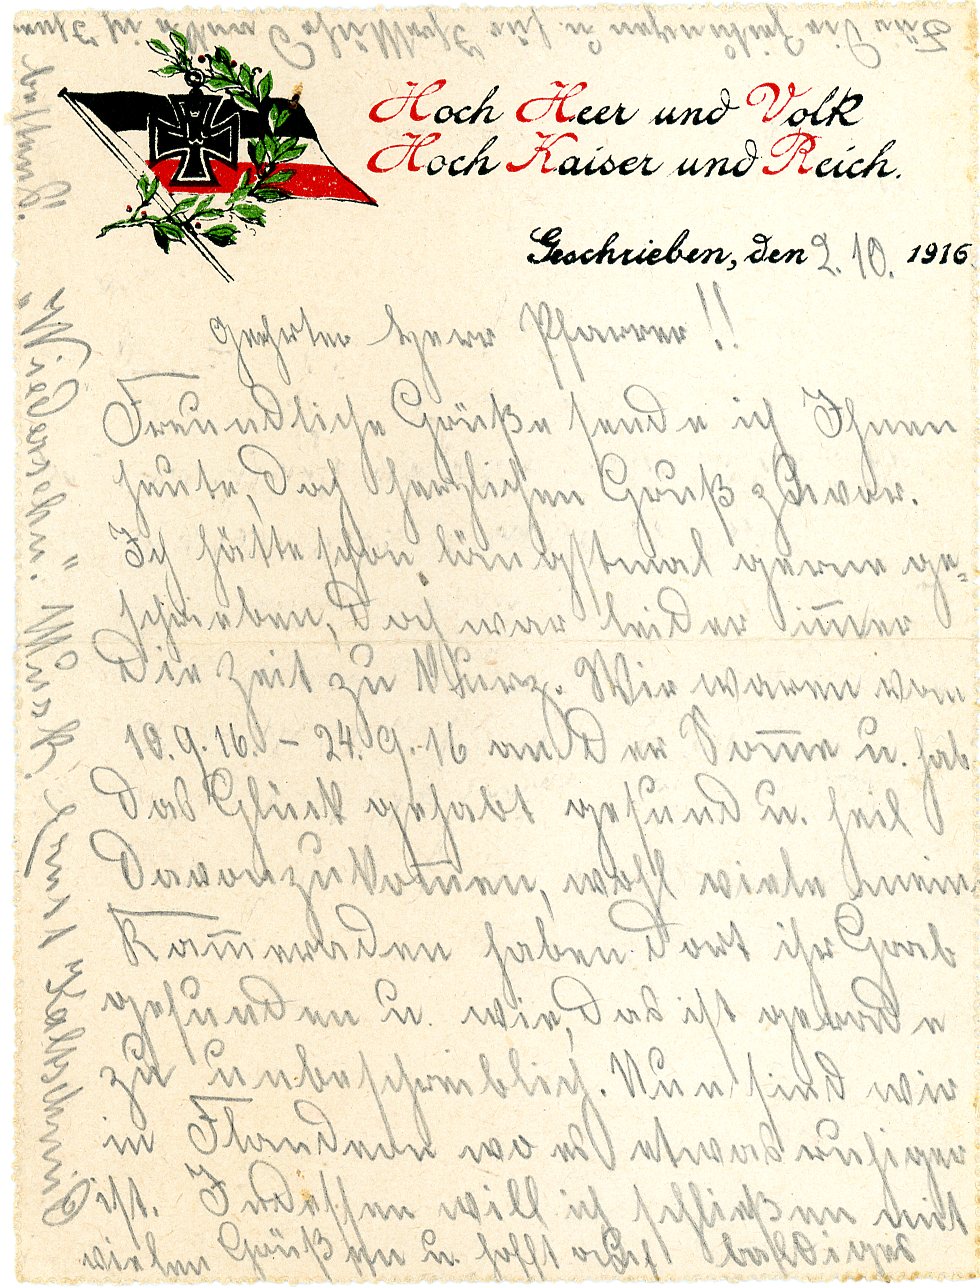 Hoch Heer und Volk
Hoch Kaiser und Reich.
Geschrieben, den 2. 10. 1916
Geehrter Herr Pfarrer!!
Freundliche Grüße sende ich Ihnen
heute, doch herzlichen Gruß zuvor.
Ich hätte schon längstmal gerne ge-
schrieben, doch war leider im̅er
die Zeit zu kurz. Wir waren vom
18.9.16 - 24.9.16 an der Som̅e u. hab
das Glück gehabt gesund u. heil
davonzukom̅en, wohl viele meine
Kam̅eraden haben dort ihr Grab
gefunden u. wie, das ist gerade
zu unbeschreiblich. Nun sind wir
in Flandern wo es etwas ruhiger
ist. Indessen will ich schließen mit
vielen Grüßen u. hofft auf
Für die Zeitungen u. für